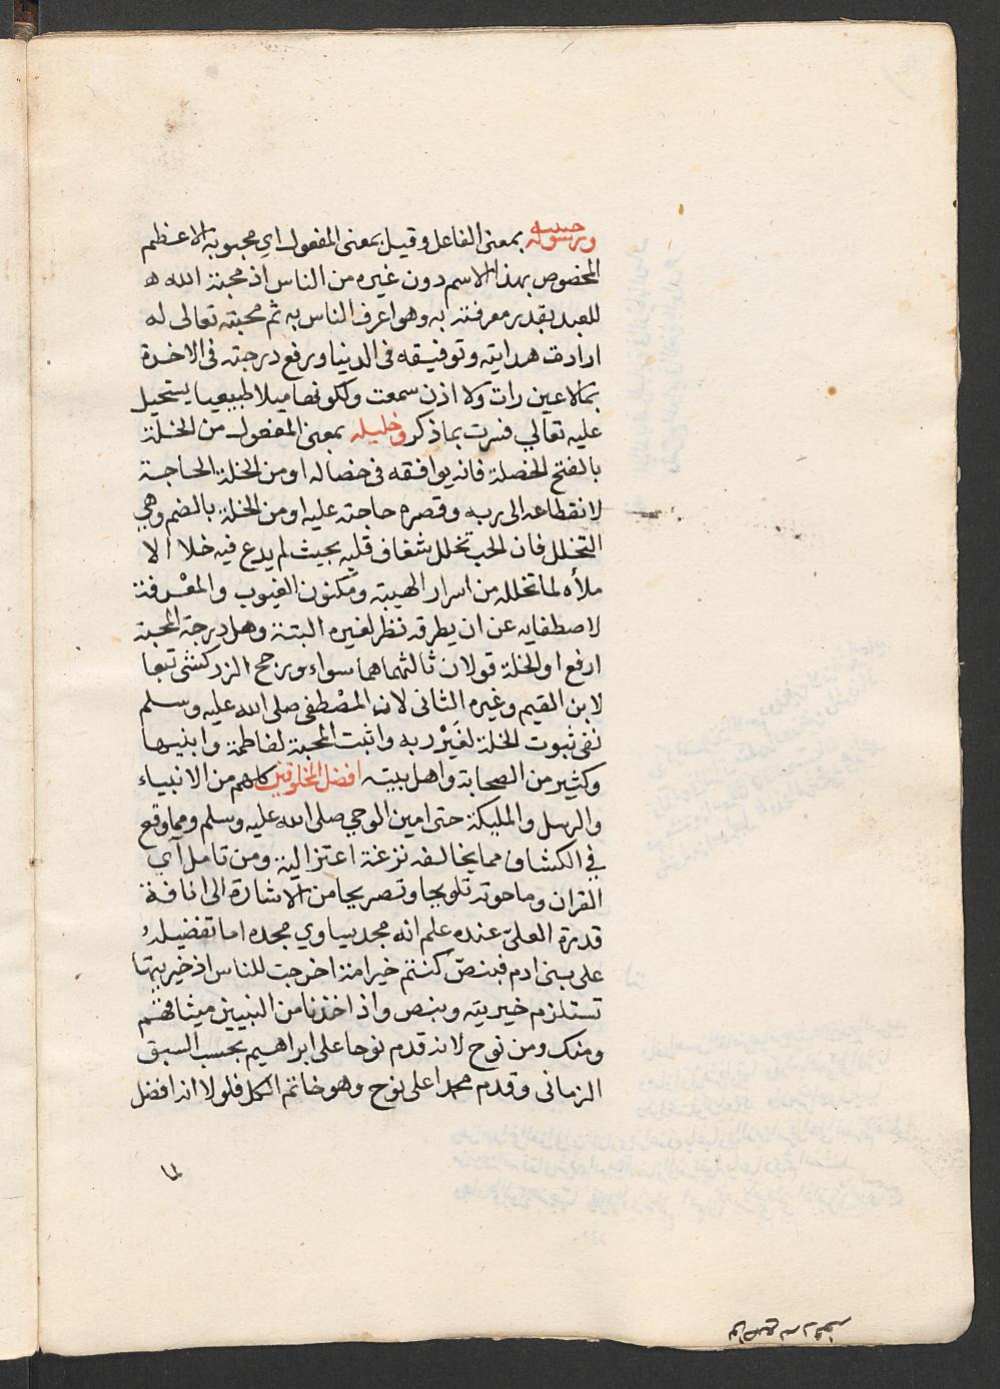 ورسوله حبيبه بمعنى الفاعل وقيل بمعنى المفعول اي محبوبه الاعظم
المخصوص بهذا الاسم دون غيره من الناس اذ محبة الله
للعبد بقدر معرفته به وهو اعرف الناس به ثم محبته تعالى له
ارادة هدايته وتوفيقه فى الدنيا ورفع درجته فى الاخرة
بما لا عين رات ولا اذن سمعت ولكونها ميلا طبيعيا يستحيل
عليه تعالي فسرت بما ذكر وخليله بمعنى المفعول من الخلة
بالفتح الخصلة فانه يوافقه فى خصاله او من الخلة الحاجة
لانقطاعه الى ربه وقصره حاجته عليه او من الخلة بالضم وهي
التخلل فان الحب تخلل شغاف قلبه بحيث لم يدع فيه خلا الا
ملأه لما تخلله من اسرار الهيبة ومكنون الغيوب والمعرفة
لاصطفايه عن ان يطرقه نظر لغيره البتة وهل درجة المحبة
ارفع او الخلة قولان ثالثهما هما سواء ورجح الزركشى تبعا
لابن القيم وغيره الثانى لان المصطفى صلى الله عليه وسلم
نفى ثبوت الخلة لغير ربه واثبت المحبة لفاطمة وابنيها
وكثير من الصحابة واهل بيته افضل المخلوقين كلهم من الانبياء
والرسل والمليكة حتى امين الوحي صلى الله عليه وسلم ومما وقع
في الكشاف مما يخالفه نزعة اعتزالية ومن تامل آي
القران وما حوته تلويحا وتصريحا من الاشارة الى انافة
قدرة العلىّ عنده علم انه مجد يساوي مجده اما تفضيله
على بنى ادم فبنصّ كنتم خير امة اخرجت للناس اذ خيريتها
تستلزم خيريته وبنص واذ اخذنا من النبيين ميثاقهم
ومنك ومن نوح لانه قدم نوحا على ابراهيم بحسب السبق
الزمانى وقدم محمدا على نوح وهو خاتم الكل فلولا انه افضل
لما